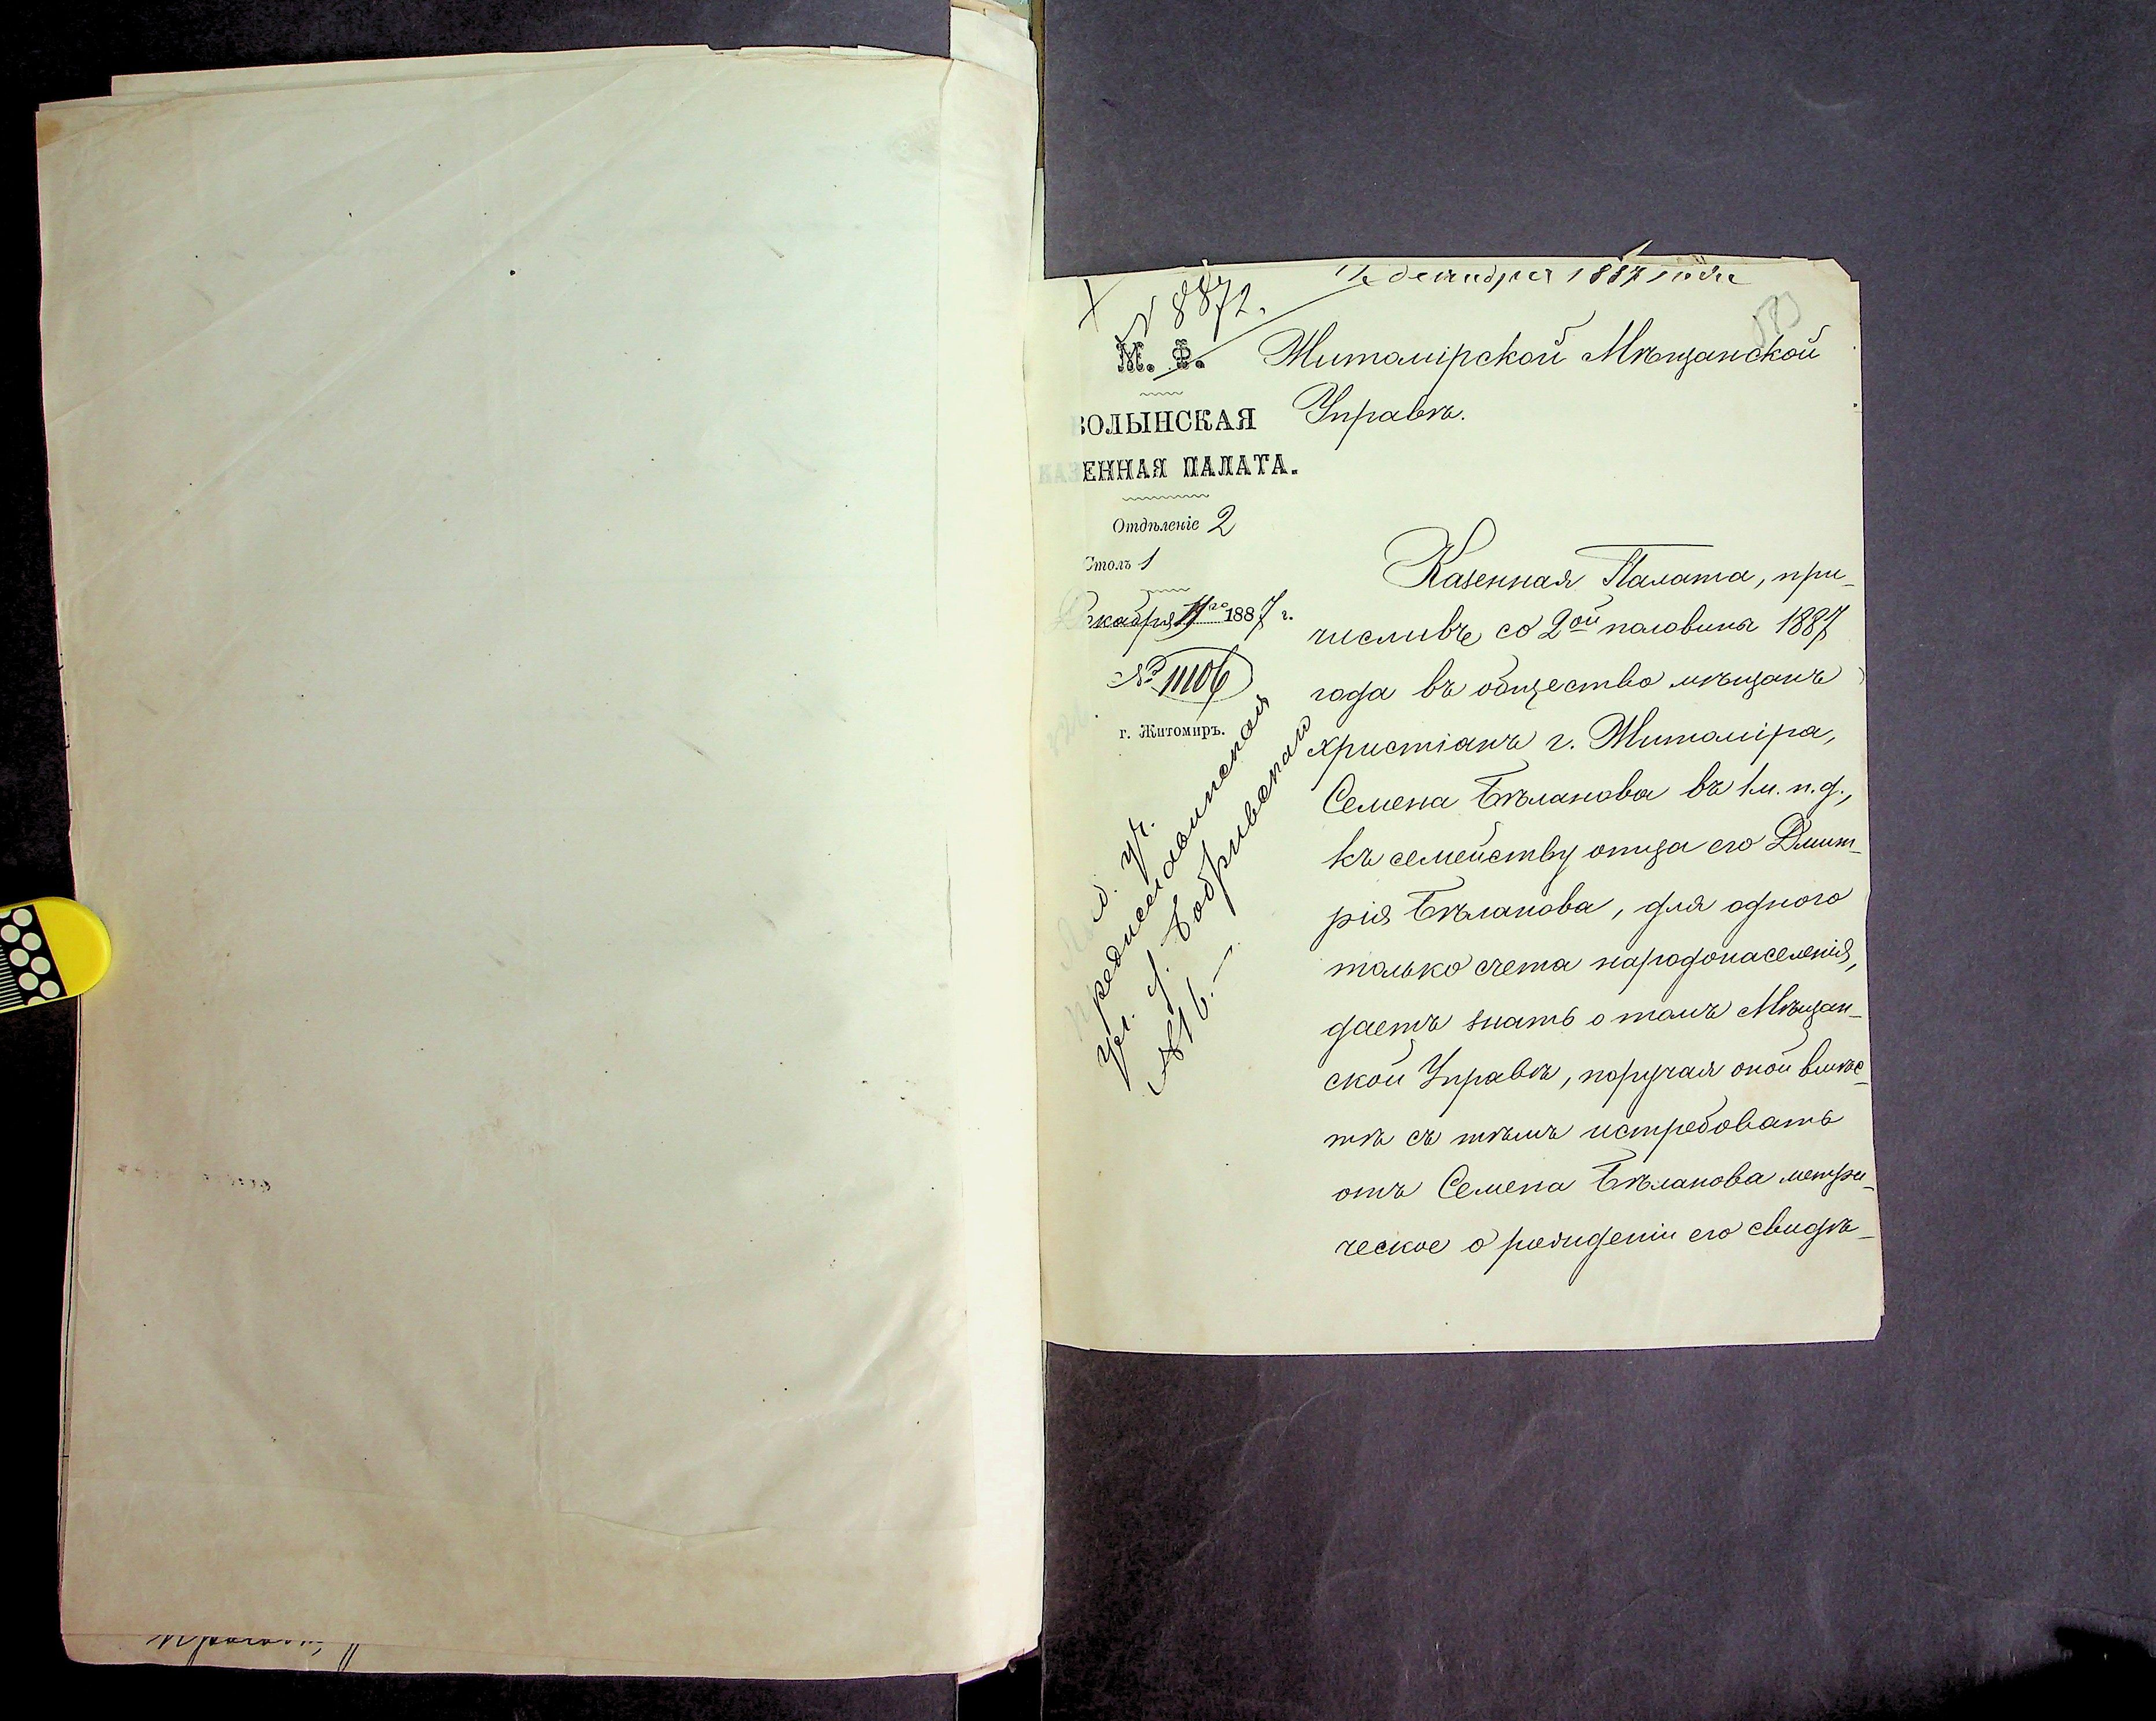 12 декабря 1887 года
№ 8872.
М. Ф.
ВОЛЫНСКАЯ
КАЗЕННАЯ ПАЛАТА.
Отдѣленіе 2
Столъ 1
Декабря 11го 1887 г.
№ 11106
г. Житомиръ.
Житомірской Мѣщанской
Управѣ.
Казенная Палата, при-
числивъ со 2ой половины 1887
года въ общество мѣщанъ
христіанъ г. Житоміра,
Семена Бѣланова въ 1 м. п. д.,
къ семейству отца его Дмит-
рія Бѣланова, для одного
только счета народонаселенія,
даетъ знать о томъ Мѣщан-
ской Управѣ, поручая оной вмѣс-
тѣ съ тѣмъ истребовать
отъ Семена Бѣланова метри-
ческое о рожденіи его свидѣ-
уч.
ул. д. Бобривскаго
№ 16.—